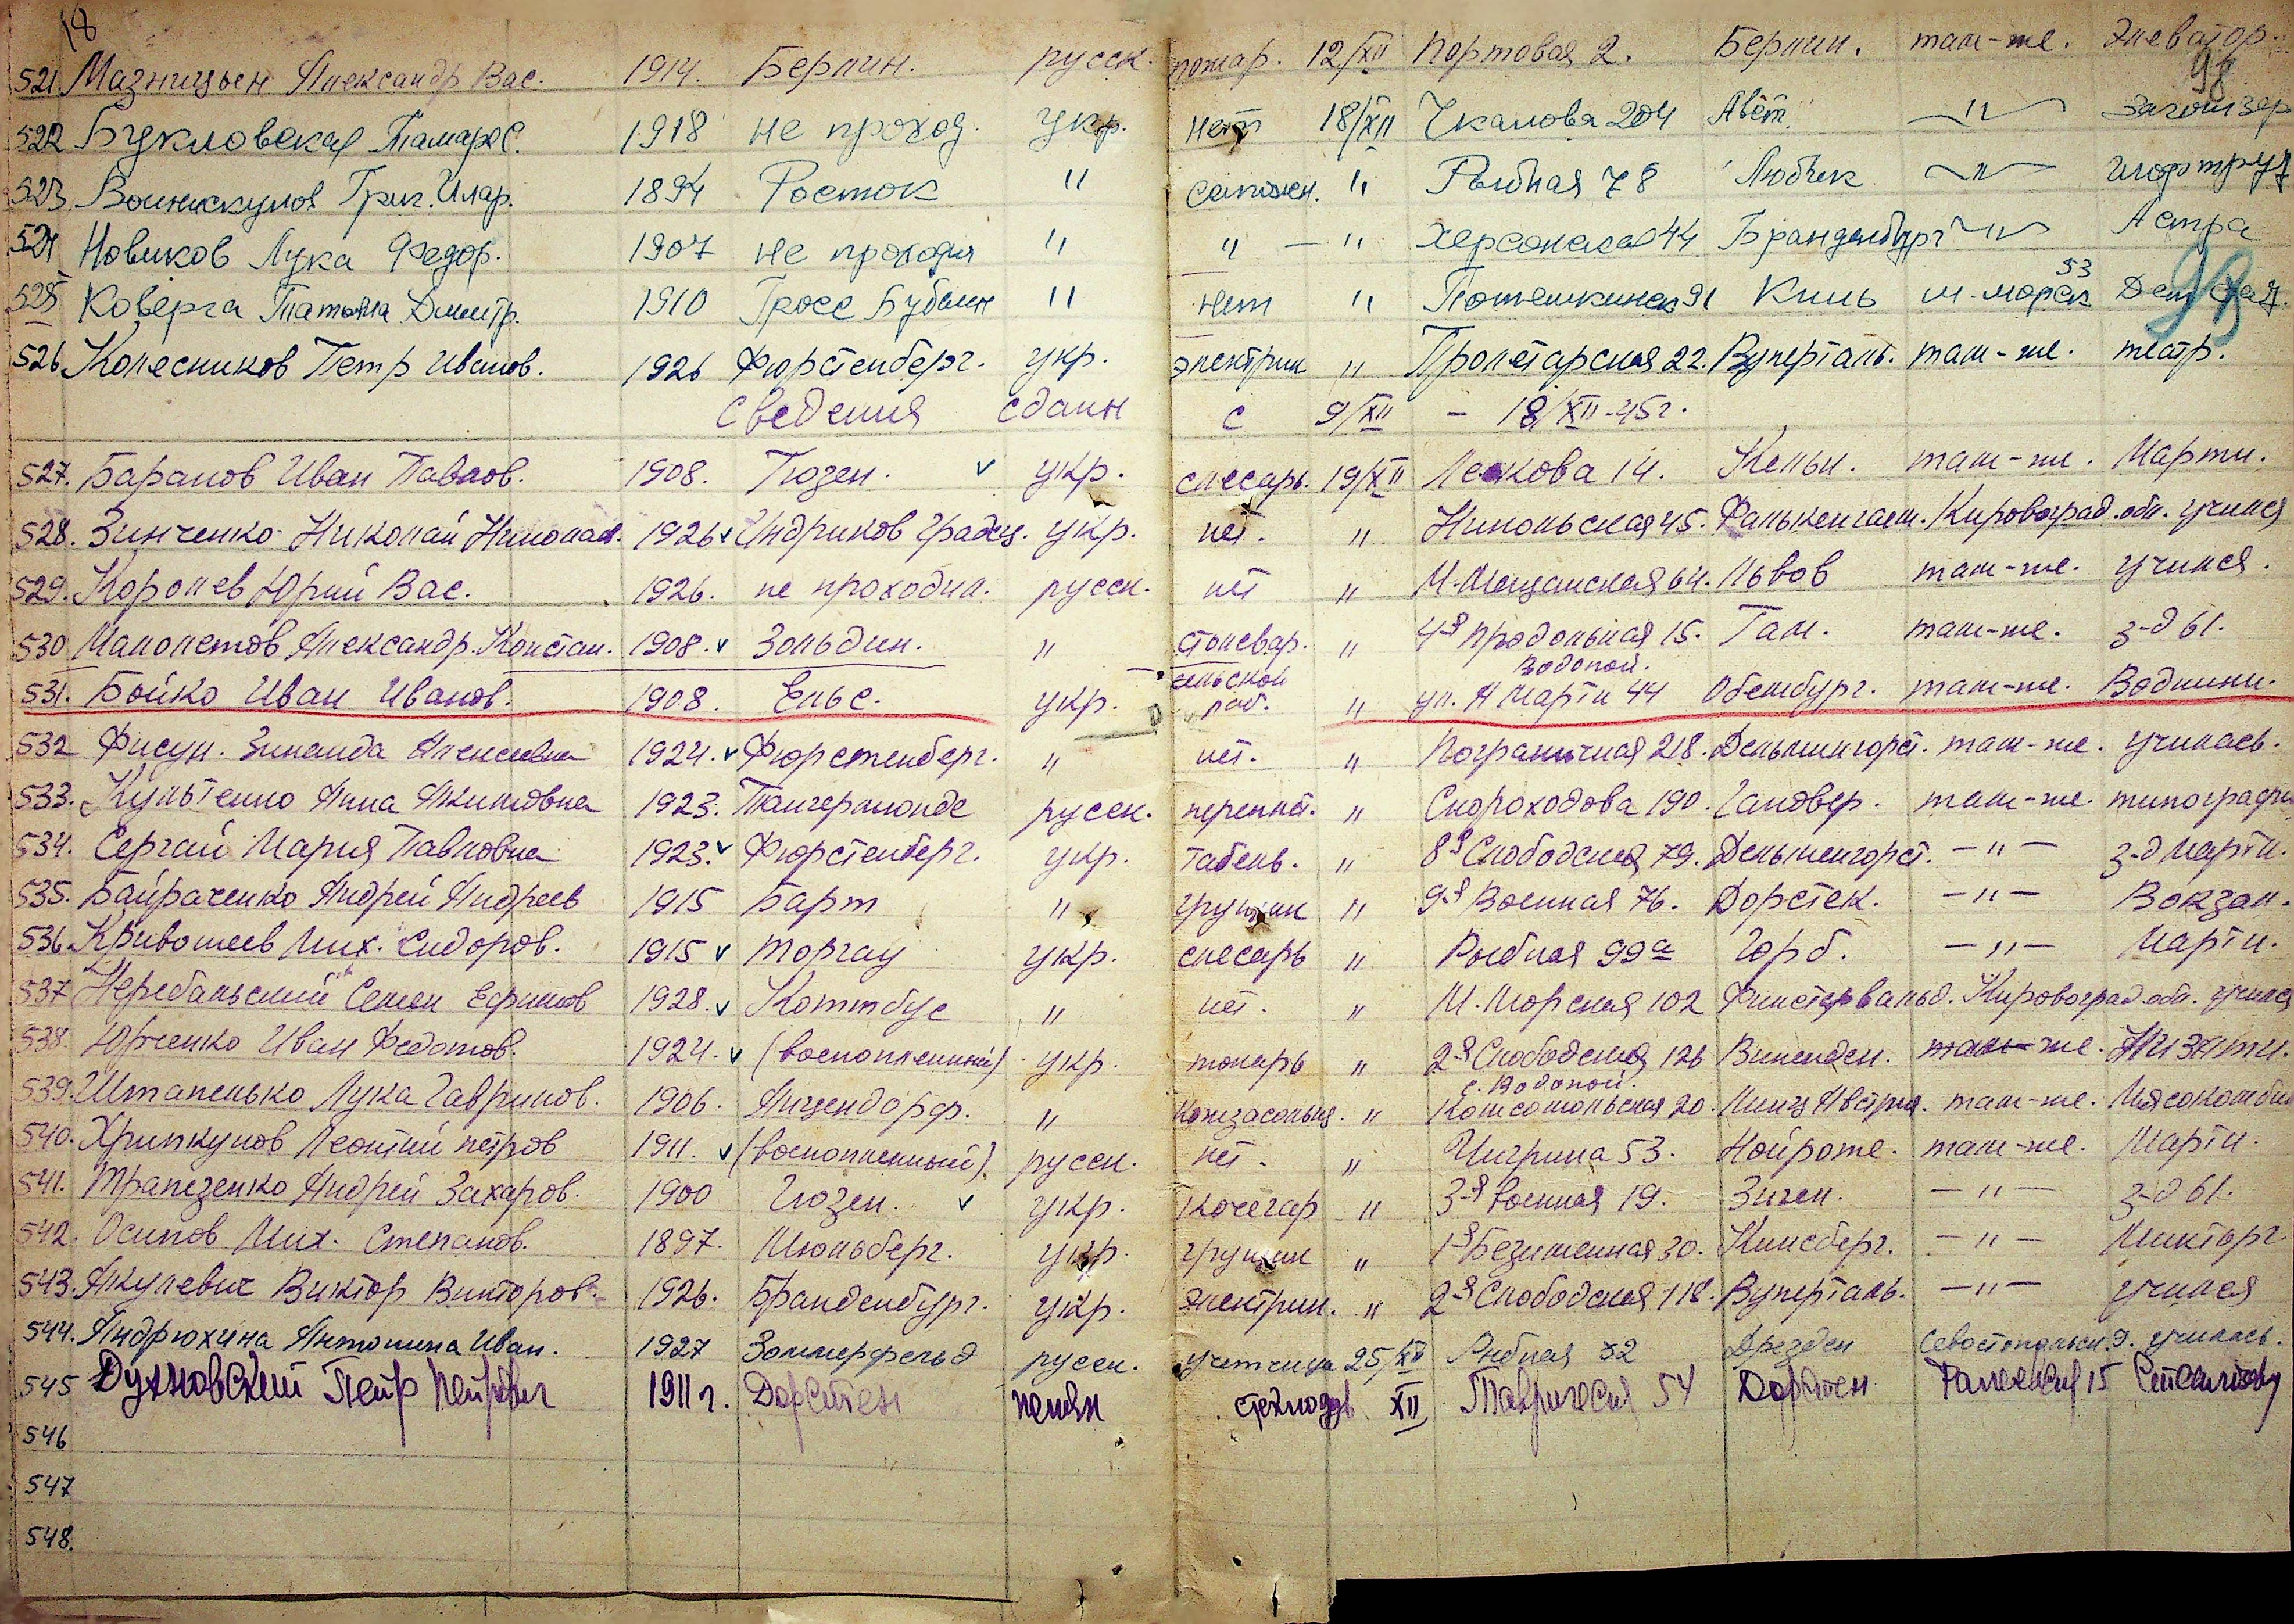 18
521. Мазницын Александр Вас. 1914. Берлин. русск. пожар. 12/XII Портовая 2. Берлин. там-же. Элеватор.
98
522 Букловская Тамара С. 1918 не проход. укр. нет 18/XII Чкалова 204 Авст. —"— Заготзер
523. Григ. Илар. 1894 Росток " " Рыбная 78 Любек —"—
524 Новиков Лука Федор. 1907 не проходил " " — " Херсонская 44 Бранденбург —"— Астра
525 Коверга Татьяна Дмитр. 1910 Гросс " нет " Потемкинск 91 Киль м-морск 53 Дет сад
98
526 Колесников Петр Иванов. 1926 Фюрстенберг. укр. электрик " Пролетарская 22. Вуперталь. там-же. театр.
Сведения сданы с 9/XII - 18/XII-45г.
527. Баранов Иван Павлов. 1908. Гюзен. v укр. слесарь. 19/XII Лескова 14. Кельн. там-же. Марти.
528. Зинченко Николай Николаев. 1926 v Индрихов Градец. укр. нет. " Никольская 45. Кировоград. обл. учился
529. Королев Юрий Вас. 1926. не проходил. русск. нет " М.Мещанская 64. Львов там-же. учился.
530 Малолетов Александр. Констан. 1908. v Зольдин. " сталевар. " 4-я продольная 15. Гам. там-же. з-д 61.
531. Бойко Иван Иванов. 1908. Ельс. укр. сельской раб. " Водопой. ул. А Марти 44 там-же. Водники.
532 Фисун. Зинаида Алексеевна 1924. v Фюрстенберг. " нет. " Пограничная 218. Дельменгорст. там-же. училась.
533. Анна Акимовна 1923. Тангермюнде русск. переплет. " Скороходова 190. Гановер. там-же. типография
534. Сергай Мария Павловна 1923. v Фюрстенберг. укр. табель. " 8я Слободская 79. Дельменгорст. —"— з-д Марти.
535. Байраченко Андрей Андреев 1915 Барт " грузчик " 9-я Военная 76. —"— Вокзал.
536 Кривошеев Мих. Сидоров. 1915 v Торгау укр. слесарь " Рыбная 99а —"— Марти.
537 Семен Ефимов 1928. v Коттбус " нет. " М.Морская 102 Финстервальд. Кировоград. обл. учился
538. Юрченко Иван Федотов. 1924. v (военопленный) укр. токарь " 2-я Слободская 126 там-же.
539. Штапенько Лука Гаврилов. 1906. " с. Водопой. Комсомольская 20. Линц Австрия. там-же. Мясокомбин
540. Леонтий петров 1911. v (военопленный). русск. нет. " Чигрина 53. там-же. Марти.
541. Трапезенко Андрей Захаров. 1900 Гюзен. v укр. кочегар " 3-я Военная 19. Зиген. —"— з-д 61.
542. Осипов Мих. Степанов. 1897. Мюльберг. укр. грузчик " 1-я Безименная 30. —"—
543. Акулевич Виктор Викторов. 1926. Бранденбург. укр. электрик. " 2-я Слободская 118. Вуперталь. —"— учился
544. Андрюхина Антонина Иван. 1927 Зоммерфельд русск. 25/XII Рыбная 32 Дрезден училась.
545 Духновский Петр Петрович 1911 г. Дорстен XII Таврическая 54 Дорстен
546
547
548.